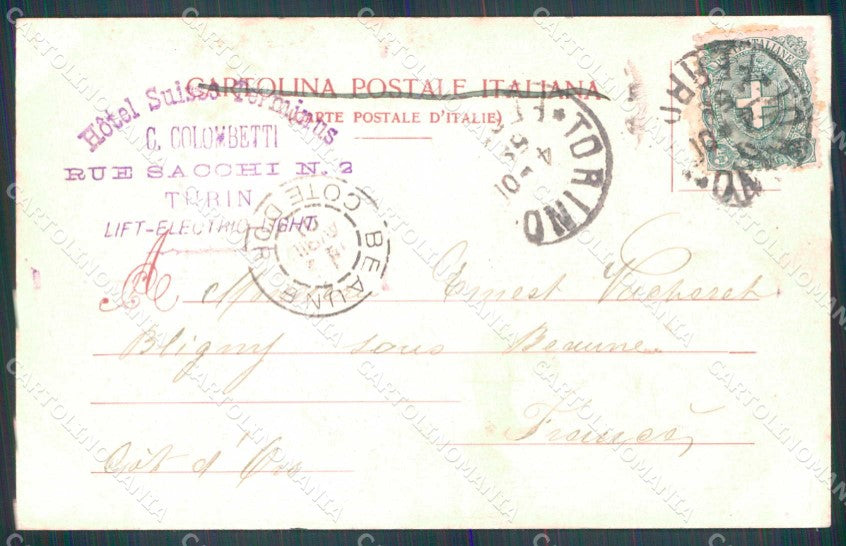 CARTOLINA POSTALE ITALIANA
(CARTE POSTALE D'ITALIE)
Hôtel Suisse Terminus
C. COLOMBETTI
RUE SACCHI N. 2
TURIN
LIFT-ELECTRIC LIGHT
TORINO
4
BEAUNE
COTE D'OR
A M Ernest Vacherot
Bligny sous Beaune
France
Côt d'Or
CARTOLINOMANIA